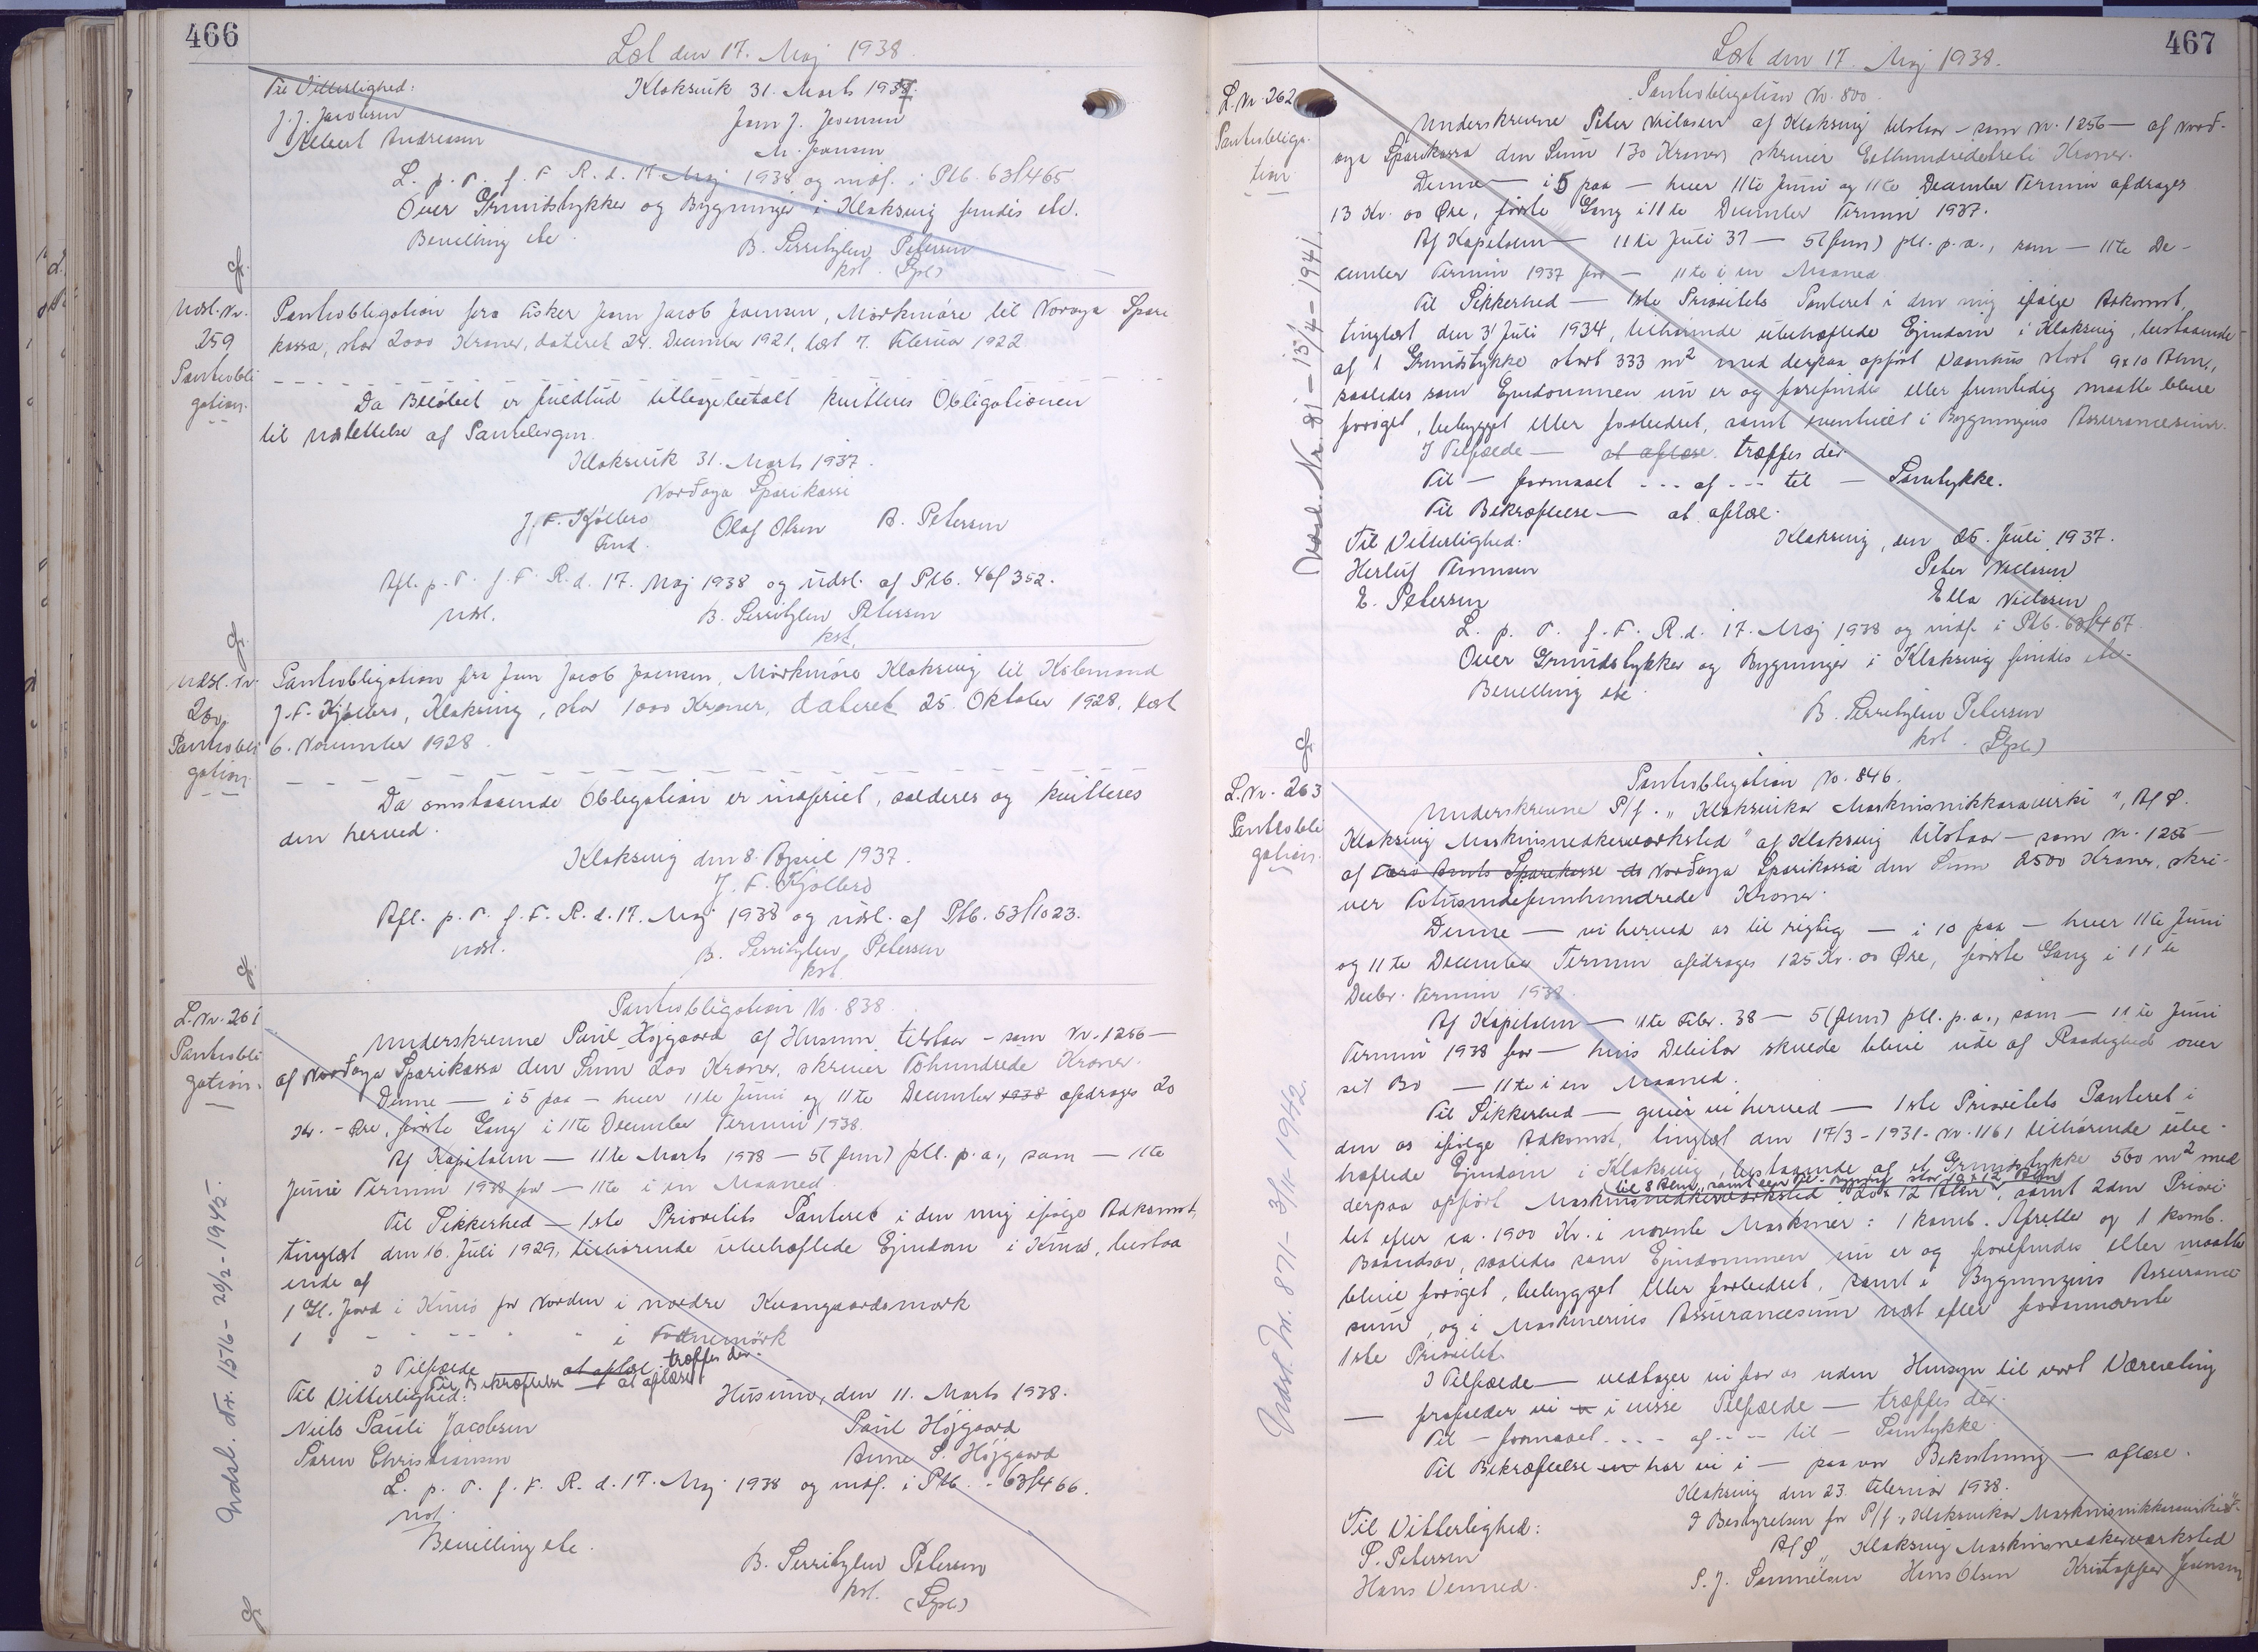 466
Læst den 17. Maj 1938.
Til Vitterlighed: Klaksvik 31. Marts 1937.
J. J. Jacobsen
Albert Andreasen M. Joensen
L. p. T. f. F. R. d. 17 Maj 1938 og indf. i Ptb. 63/465
Over Grundstykker og Bygninger i Klaksvig findes etc.
Bevilling etc. B. Serritzlew Petersen
kst. (Sgl.)
Udsl. Nr.
259
Pantobli
gation.
Pantobligation fra Fisker Joen Jacob Joensen, Mørkmøre til Norøya Spare
kassa, stor 2000 Kroner, dateret 24. December 1921, læst 7. Februar 1922
Da Beløbet er fuldtud tilbagebetalt kvitteres Obligationen
til Udslettelse af Pantebogen.
Klaksvik 31. Marts 1937.
Norðoya Sparikassi
J. F. Kjølbro Olaf Olsen A. Petersen
Fmd.
Afl. p. T. f. F. R. d. 17. Maj 1938 og udsl. af Ptb. 46/352.
Udsl. B. Serritzlew Petersen
kst.
Udsl. Nr.
260
Pantobli
gation.
Pantobligation fra Joen Jacob Joensen, Mørkmøre Klaksvig til Købmand
J. F. Kjølbro, Klaksvig, stor 1000 Kroner, dateret 25. Oktober 1928, læst
6. November 1928.
Da omstaaende Obligation er indfriet, annulleres og kvitteres
den herved.
Klaksvig den 8. April 1937.
J. F. Kjølbro
Afl. p. T. f. F. R. d. 17. Maj 1938 og udsl. af Ptb. 53/1023.
Udsl. B. Serritzlew Petersen
kst.
L. Nr. 261
Pantobli
gation.
Pantobligation No. 838
Underskrevne Paul Højgaard af Husum tilstaar - som Nr. 1256 —
af Norðoya Sparikassa den Sum 200 Kroner, skriver Tohundrede Kroner.
Denne — i 5 paa — hver 11te Juni og 11te December 1938 afdrages 20
Kr. - Øre, første Gang i 11te December Termin 1938.
Af Kapitalen — 11te Marts 1938 — 5 (fem) pCt. p. a., som — 11te
Juni Termin 1938 for — 11te i en Maaned.
Til Sikkerhed — 1ste Prioritets Panteret i den mig ifølge Adkomst,
tinglæst den 16. Juli 1929, tilhørende ubehæftede Ejendom i Kunø, bestaa
ende af
1 Gl. Jord i Kunø for Norden i nordre Kvangaardsmark
1 - - - - - i Fodnemørk
I Tilfælde — at aflæs. træffes der.
Til Bekræftelse — at aflæse
Til Vitterlighed: Husum, den 11. Marts 1938.
Niels Pauli Jacobsen Paul Højgaard
Søren Christiansen Anne S. Højgaard
L. p. T. f. F. R. d. 17. Maj 1938 og indf. i Ptb. - 63/466.
Bevilling etc.
B. Serritzlew Petersen
kst. (Sgl.)
Udsl. Nr. 1516 - 20/2 - 1945.
467
Læst den 17. Maj 1938.
L. Nr. 262
Pantobliga-
tion
Pantobligation No. 800.
Underskrevne Peter Nielsen af Klaksvig tilstaar - som Nr. 1256 — af Norð-
oya Sparikassa den Sum 130 Kroner, skriver Ethundredetreti Kroner.
Denne — i 5 paa — hver 11te Juni og 11te December Termin afdrages
13 Kr. 00 Øre, første Gang i 11te December Termin 1937.
Af Kapitalen — 11te Juli 37 — 5 (fem) pCt. p. a., som — 11te De-
cember Termin 1937 for — 11te i en Maaned
Til Sikkerhed — 1ste Prioritets Panteret i den mig ifølge Adkomst,
tinglæst den 31 Juli 1934, tilhørende ubehæftede Ejendom i Klaksvig, bestaaende
af 1 Grundstykke stort 333 m² med derpaa opført Vaanhus stort 9x10 Alen,
saaledes som Ejendommen nu er og forefindes eller fremtidig maatte blive
forøget, bebygget eller forbedret, samt eventuelt i Bygningens Assurancesum.
I Tilfælde — at aflæse. træffes der
Til — formaaet - - - af - - - til — Samtykke.
Til Bekræftelse — at aflæs.
Til Vitterlighed: Klaksvig, den 26. Juli 1937.
Herluf Thomsen Peter Nielsen
E. Petersen Ella Nielsen
L. p. T. f. F. R. d. 17. Maj 1938 og indf. i Ptb. 63/467.
Over Grundstykker og Bygninger i Klaksvig findes etc.
Bevilling etc.
B. Serritzlew Petersen
kst. (Sgl.)
Udsl. Nr. 91 - 15/4 - 1941.
L. Nr. 263
Pantobli
gation.
Pantobligation No. 846.
Underskrevne P/f. „Klaksvikar Maskinsnikkaravirki", A/S.
Klaksvig Maskinsnedkerværksted" af Klaksvig tilstaar — som Nr. 1256 —
af Færø Amts Sparekasse Norðoya Sparikassa den Sum 2500 Kroner, skri-
ver Totusindefemhundrede Kroner.
Denne — vi herved os til rigtig — i 10 paa — hver 11te Juni
og 11te December Termin afdrages 125 Kr. 00 Øre, første Gang i 11te
Decbr. Termin 1938.
Af Kapitalen — 11te Febr. 38 — 5 (fem) pCt. p. a., som — 11te Juni
Termin 1938 for — hvis Debitor skulde blive ude af Raadighed over
sit Bo — 11te i en Maaned.
Til Sikkerhed — giver vi herved — 1ste Prioritets Panteret i
den os ifølge Adkomst, tinglæst den 17/3 - 1931 - Nr. 1161 tilhørende ube-
hæftede Ejendom i Klaksvig, bestaaende af et Grundstykke 560 m² med
derpaa opført Maskinsnedkerværksted 20 x 12 Alen, samt 2den Priori
tet efter ca. 1900 Kr. i nævnte Maskiner: 1 komb. Afretter og 1 komb.
Baandsav, saaledes som Ejendommen nu er og forefindes eller maatte
blive forøget, bebygget eller forbedret, samt i Bygningens Assurance
sum, og i Maskinernes Assurancesum næst efter fornævnte
1ste Prioritet.
I Tilfælde — vedtager vi for os uden Hensyn til vort Værneting
— frafalder vi i visse Tilfælde — træffes der.
Til — formaaet - - - af - - - til — Samtykke.
Til Bekræftelse har vi i — paa vor Bekostning — aflæse.
Klaksvig den 23. Februar 1938.
Til Vitterlighed: I Bestyrelsen for P/f „Klaksvikar Maskinsnikkaravirki"
A/S „Klaksvig Maskinsnedkerværksted
P. Petersen
Hans Venned. S. J. Samuelsen Hans Olsen Kristoffer Joensen
Udsl. Nr. 871 - 3/11 - 1942.